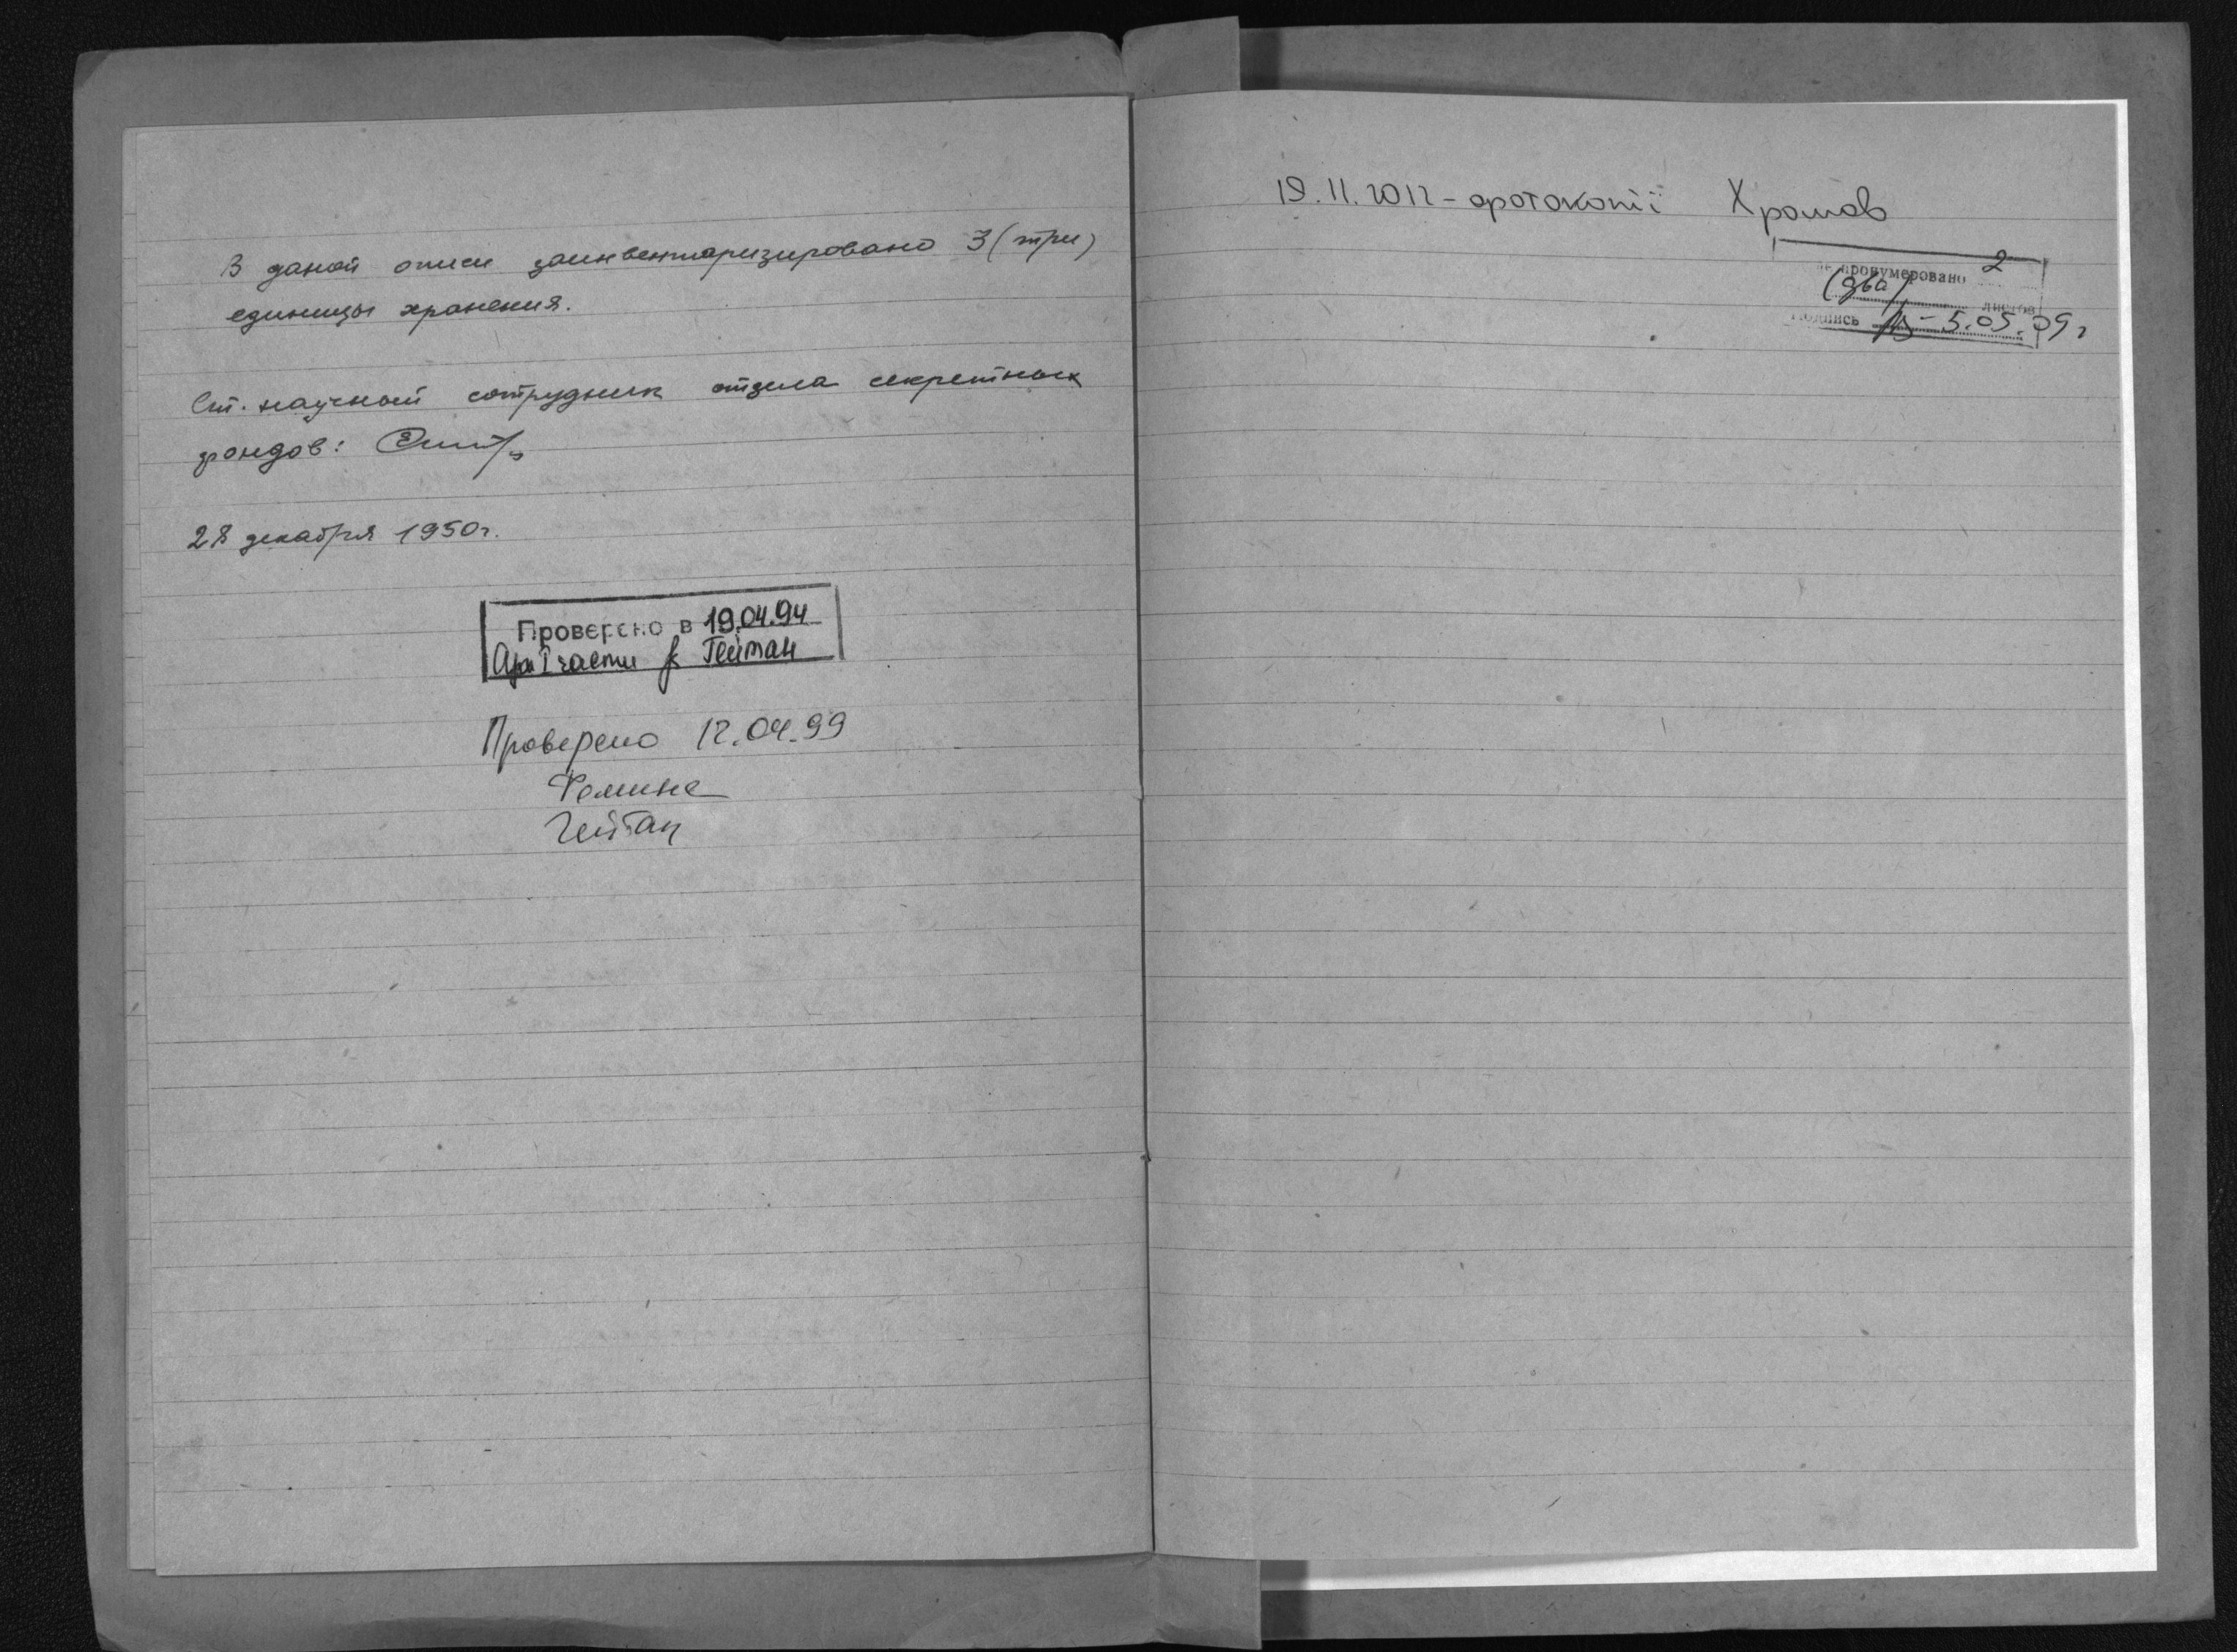 В даной описи заинвентаризировано 3 (три)
единицы хранения.
Ст. научный сотрудник отдела секретных
фондов:
28 декабря 1950г.
Проверено в 19.04.94
части Гейман
Проверено 12.04.99
Фомина
Гейман
19.11.2012 - фотокопії Хромов
пронумеровано 2
(два) листов
Подпись 5.05.09 г